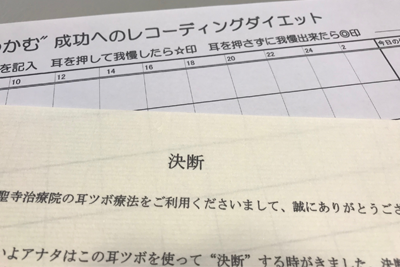 かむ〞成功へのレコーディングダイエット
を記入 耳を押して我慢したら☆印 耳を押さずに我慢出来たら◎印
今日の
10 12 14 16 18 20 22 24 2
決断
聖寺治療院の耳ツボ療法をご利用くださいまして、誠にありがとうござ
いよアナタはこの耳ツボを使って“決断”する時がきました。決断